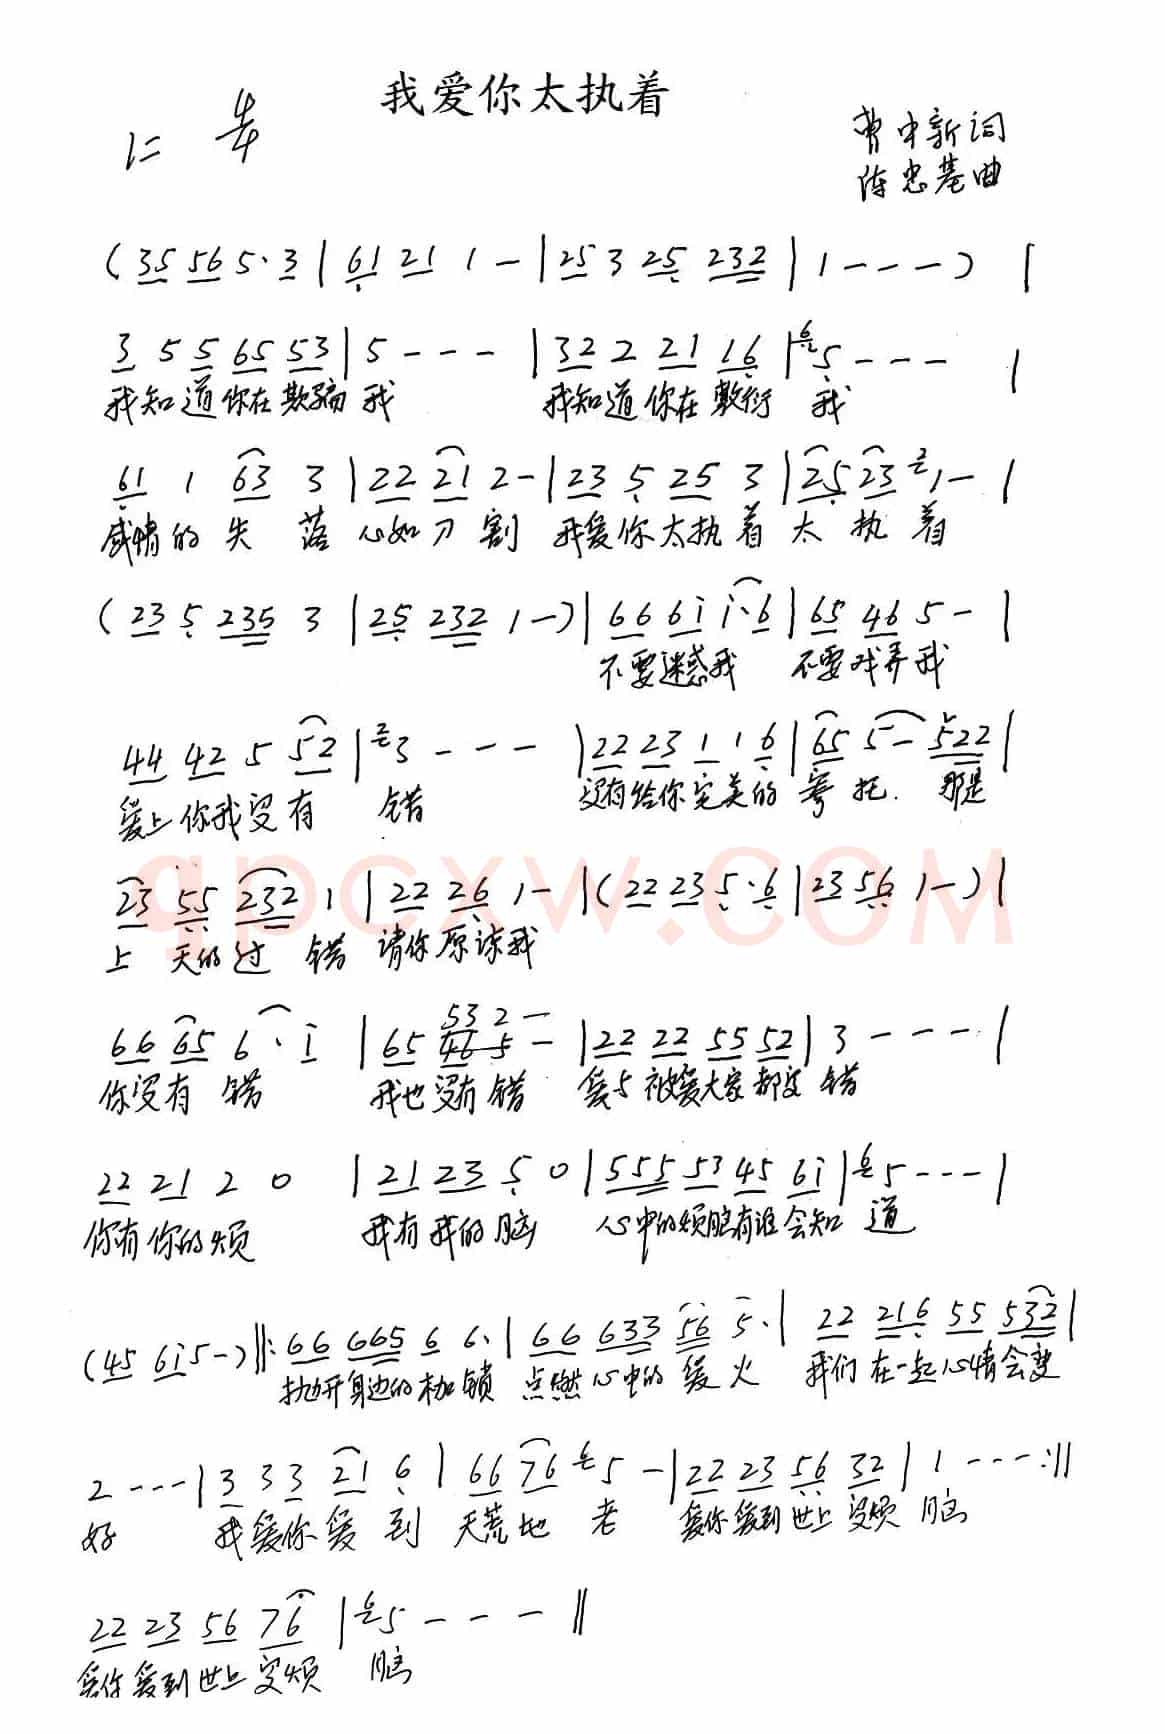 我爱你太执着
1= 4/4
曹中新词
陈忠基曲
(35 56 5·3|61 21 1-|25 3 25 232|1---)|
3 5 5 65 53|5---|32 2 21 16|6 5---|
我知道你在欺骗我 我知道你在敷衍我
61 1 63 3|22 21 2-|23 5 25 3|25 23 2 1-|
感情的失落 心如刀割 我爱你太执着 太执着
(23 5 235 3|25 232 1-)|66 6i i·6|65 46 5-|
不要迷惑我 不要戏弄我
44 42 5 52|2 3---|22 23 1 1 6|65 5- 522|
爱上你我没有错 没有给你完美的寄托. 那是
23 55 232 1|22 26 1-|(22 23 5·6|23 56 1-)|
上天的过错 请你原谅我
qpcxw.COM
53 2-
66 65 6·i|65 46 5-|22 22 55 52|3---|
你没有错 我也没有错 爱与被爱大家都没错
22 21 2 0|21 23 5 0|555 53 45 6i|6 5---|
你有你的烦 我有我的脑 心中的烦脑有谁会知道
(45 6i5-)‖:66 665 6 6·|66 633 56 5·|22 216 55 532|
抛开身边的枷锁 点燃心中的爱火 我们在一起心情会变
2---|3 3 3 21 6|66 76 6 5-|22 23 56 32|1---:‖
好 我爱你爱到天荒地老 爱你爱到世上没烦脑
22 23 56 76|6 5---‖
爱你爱到世上没烦 脑